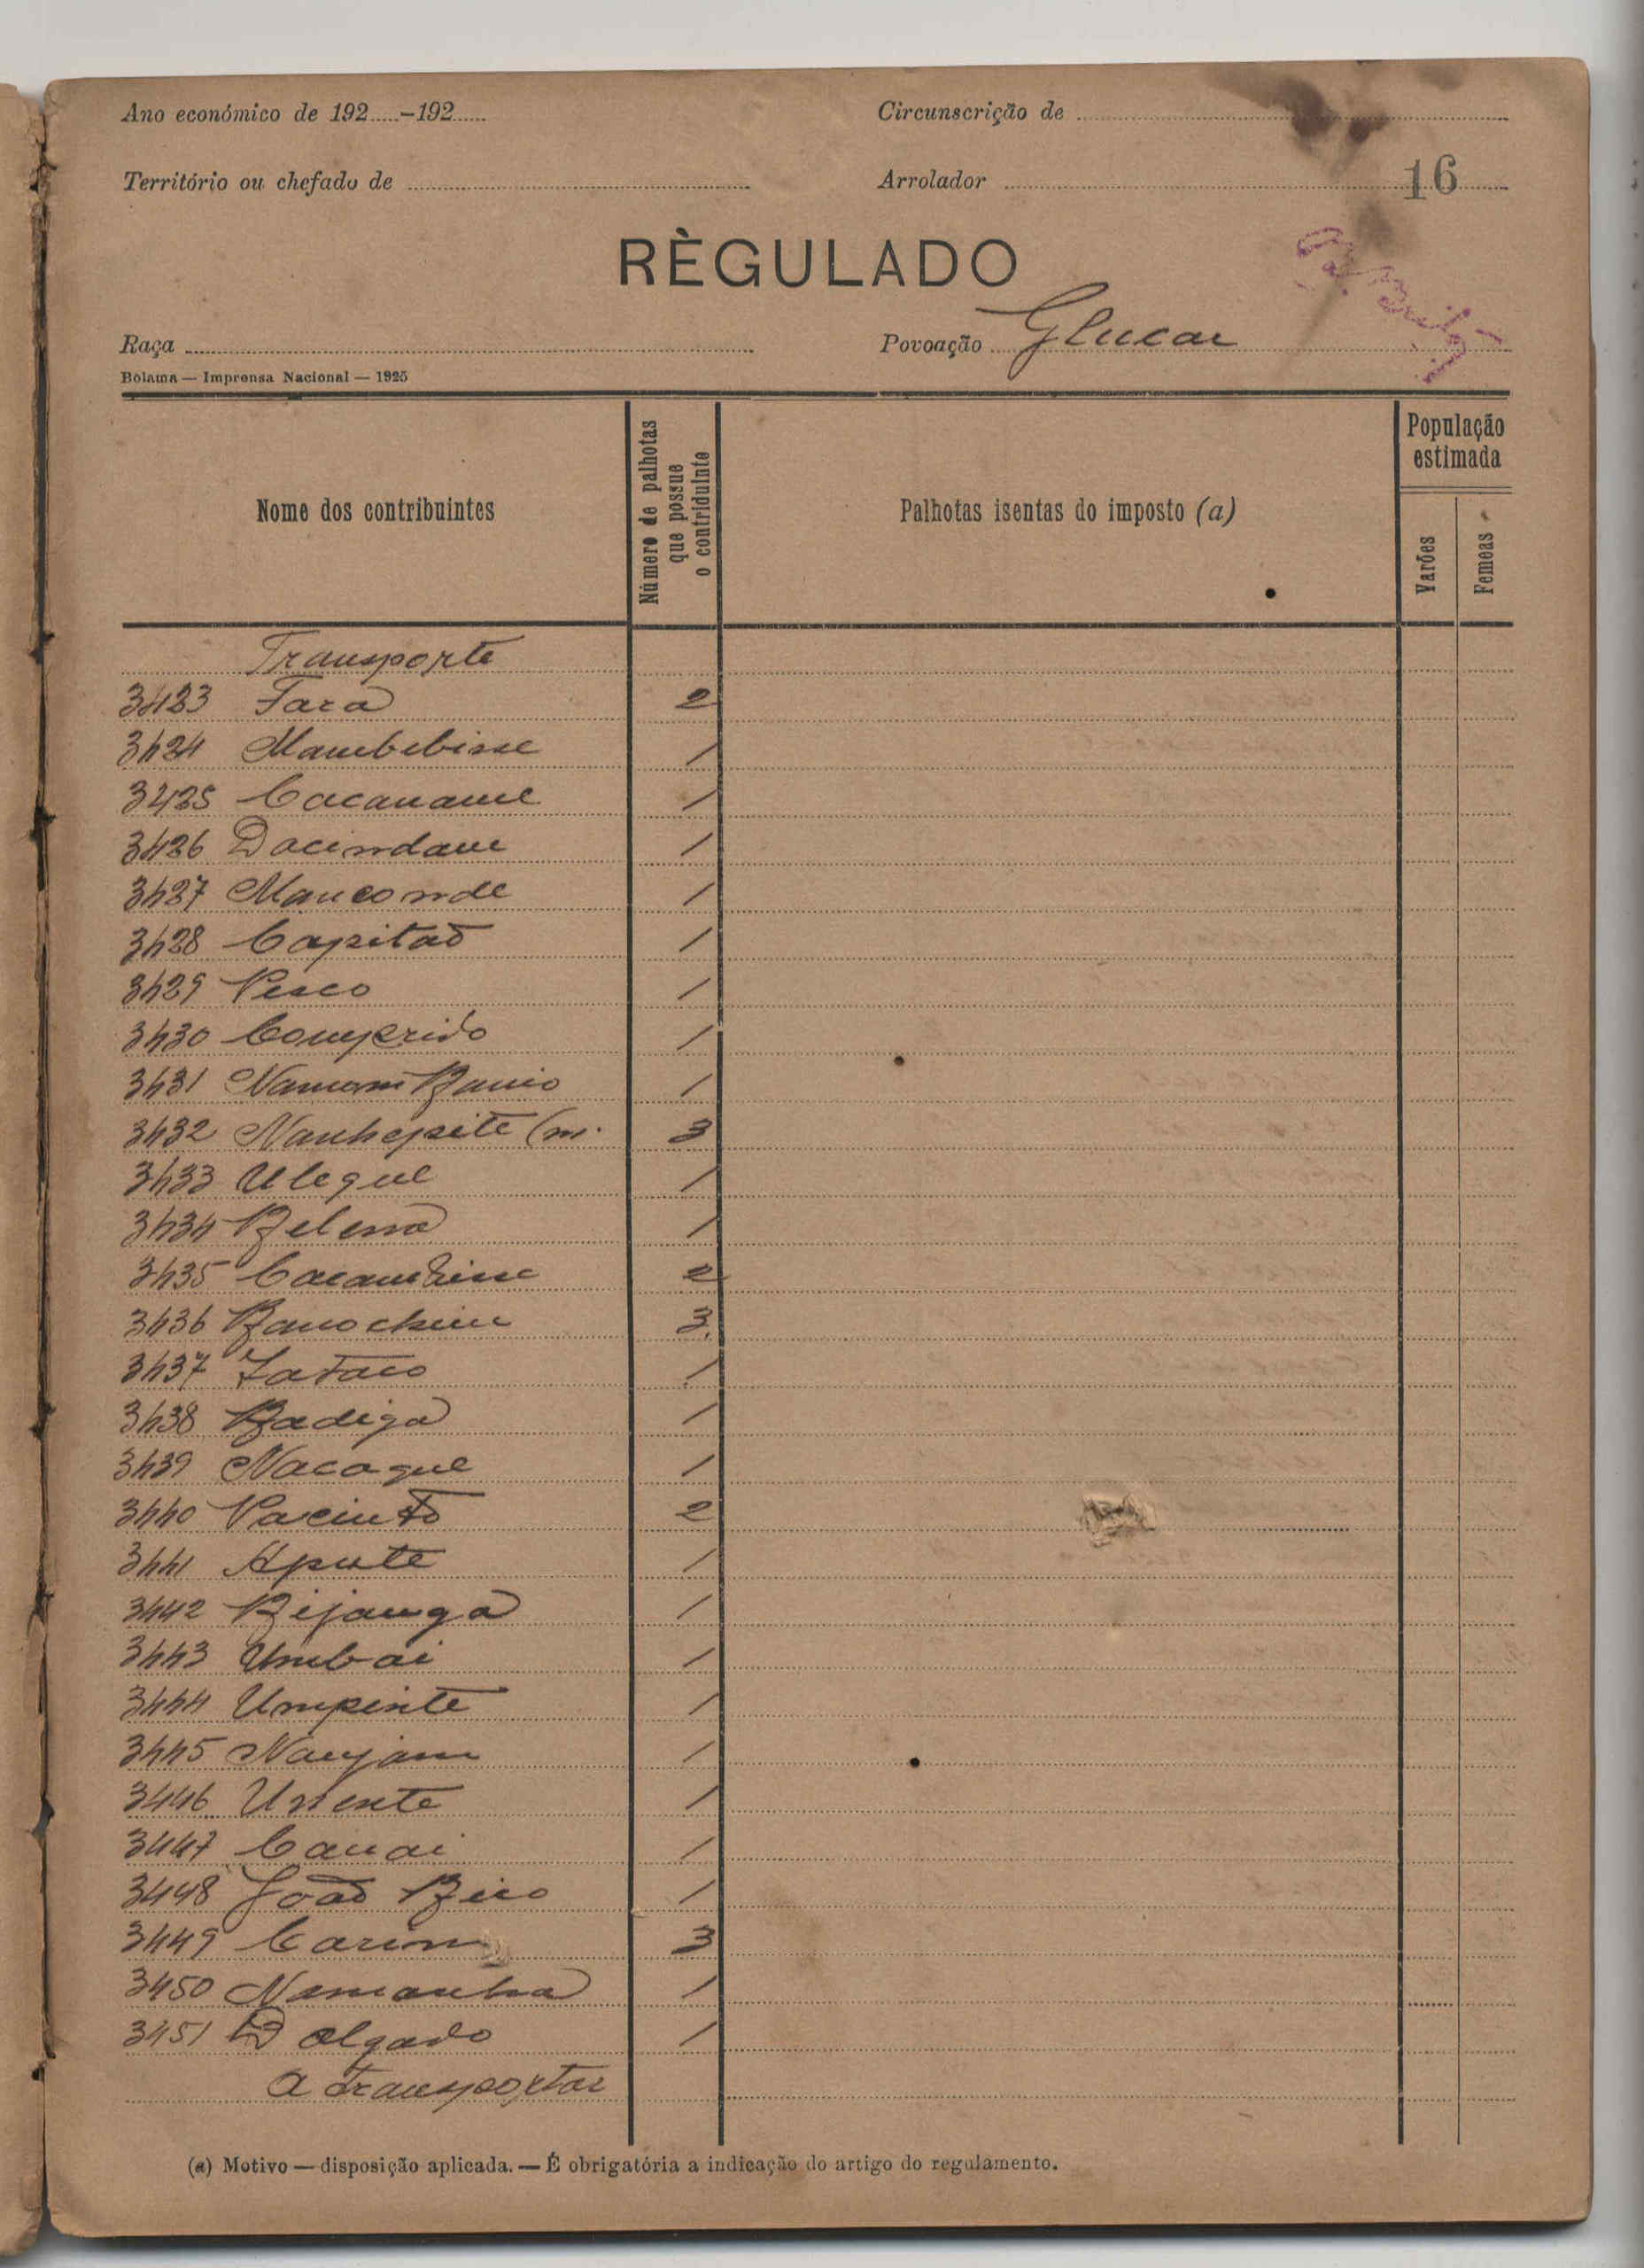 Ano económico de 192.....-192......
Circunscrição de
Território ou chefado de
Arrolador
16
RÈGULADO
Raça
Povoação Glucar
Bolama — Imprensa Nacional — 1925
Nome dos contribuintes
Número de palhotas que possue o contriduinte
Palhotas isentas do imposto (a)
População estimada
Varões
Femeas
Transporte
3423 Fara 2
3424 Mambebisse 1
3425 Cacaname 1
3426 Dacindane 1
3427 Manconde 1
3428 Capitão 1
3429 1
3430 Comprido 1
3431 1
3432 Nanhepite (m. 3
3433 Ulegue 1
3434 Belena 1
3435 2
3436 3
3437 Zataco 1
3438 Badiga 1
3439 Nacague 1
3440 2
3441 Apute 1
3442 Bijanga 1
3443 Umbai 1
3444 Umpinte 1
3445 1
3446 1
3447 1
3448 João Bico 1
3449 3
3450 Nemanha 1
3451 Dolgado 1
a transportar
(a) Motivo — disposição aplicada. — É obrigatória a indicação do artigo do regulamento.